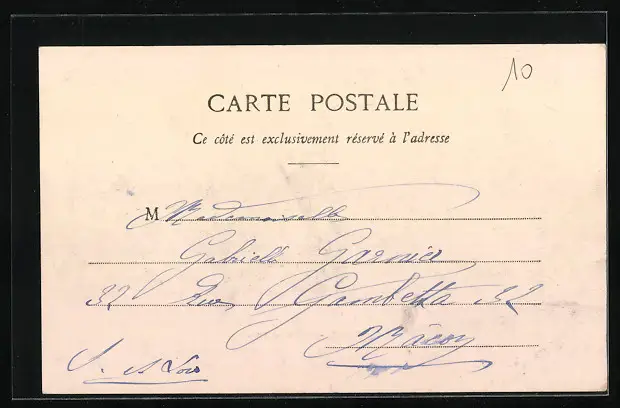 10
CARTE POSTALE
Ce côté est exclusivement réservé à l'adresse
M Mademoiselle
Gabrielle Garnier
32 Rue Gambetta 32
Mâcon
S. et Loire